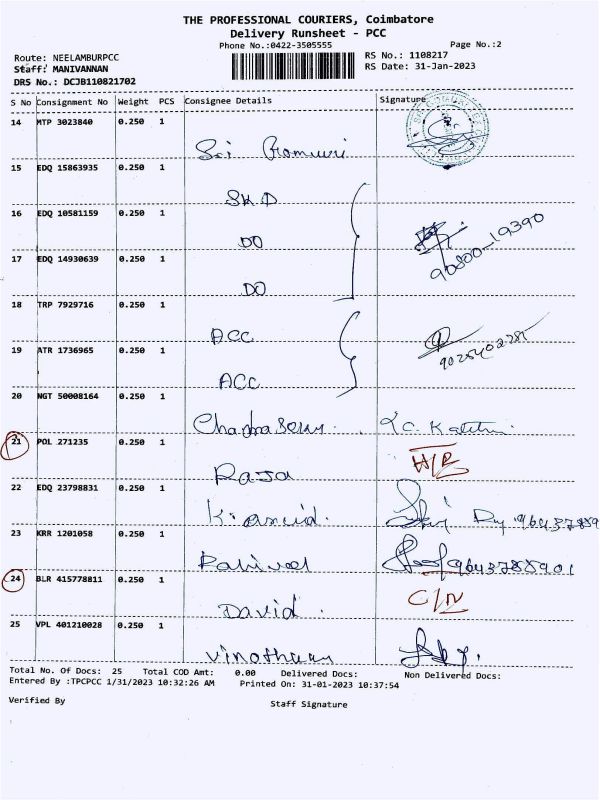 THE PROFESSIONAL COURIERS, Coimbatore
Delivery Runsheet - PCC
Phone No.:0422-3505555 Page No.:2
Route: NEELAMBURPCC RS No.: 1108217
Staff: MANIVANNAN RS Date: 31-Jan-2023
DRS No.: DCJB110821702
S No Consignment No Weight PCS Consignee Details Signature
14 MTP 3023840 0.250 1
Sri
15 EDQ 15863935 0.250 1
SK.D
16 EDQ 10581159 0.250 1
DO 90800-19390
17 EDQ 14930639 0.250 1
DO
18 TRP 7929716 0.250 1
ACC
19 ATR 1736965 0.250 1
ACC
20 NGT 50008164 0.250 1
21 POL 271235 0.250 1
Raja
22 EDQ 23798831 0.250 1
23 KRR 1201058 0.250 1
9643788901
24 BLR 415778811 0.250 1
David C/N
25 VPL 401210028 0.250 1
Total No. Of Docs: 25 Total COD Amt: 0.00 Delivered Docs: Non Delivered Docs:
Entered By :TPCPCC 1/31/2023 10:32:26 AM Printed On: 31-01-2023 10:37:54
Verified By Staff Signature